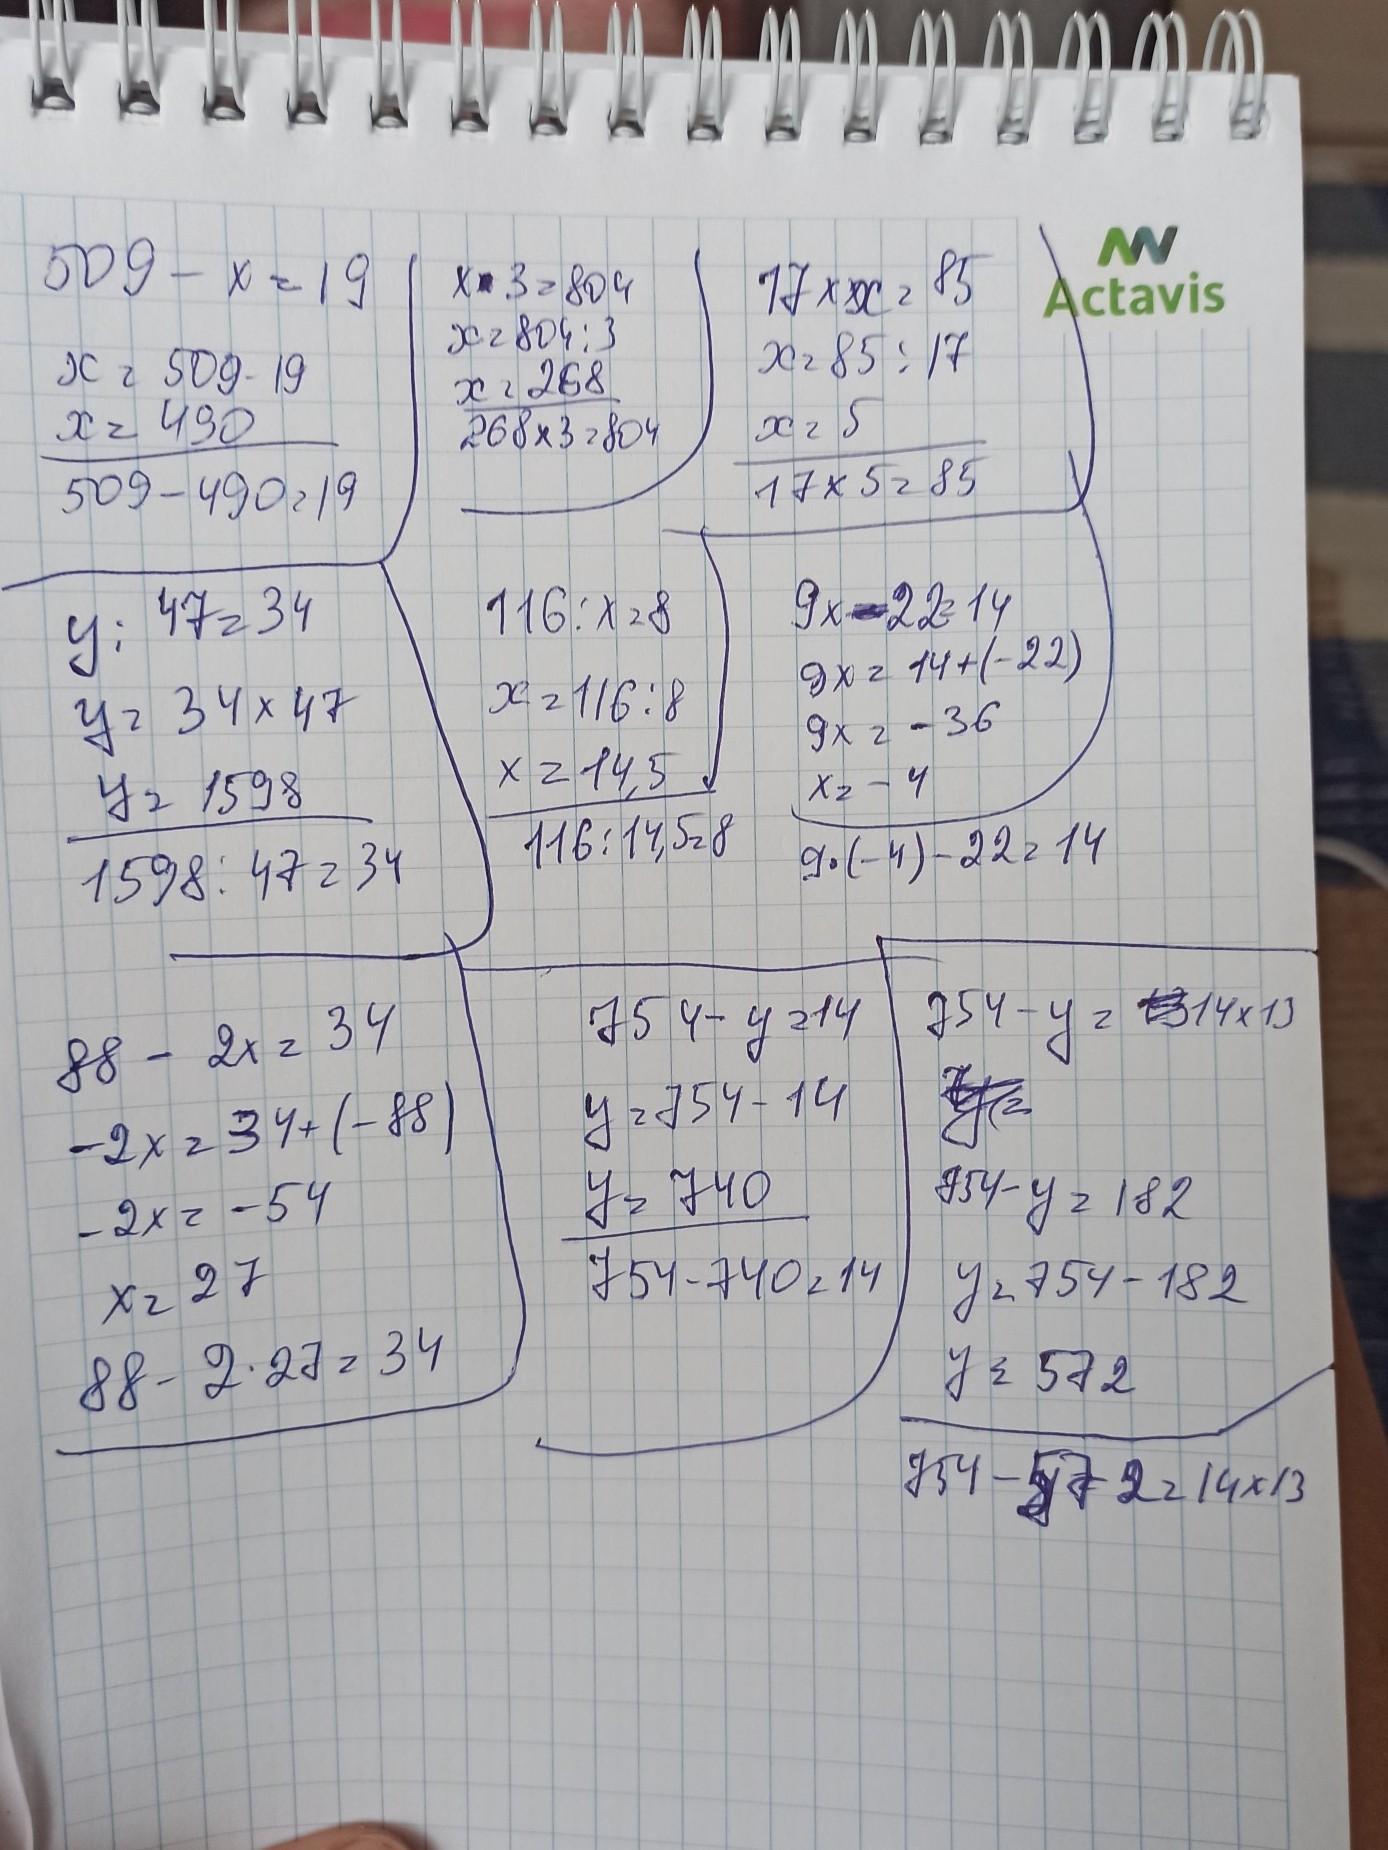 Actavis
509 - x = 19
x = 509 - 19
x = 490
509 - 490 = 19
x · 3 = 804
x = 804 : 3
x = 268
268 x 3 = 804
17 x x = 85
x = 85 : 17
x = 5
17 x 5 = 85
y : 47 = 34
y = 34 x 47
y = 1598
1598 : 47 = 34
116 : x = 8
x = 116 : 8
x = 14,5
116 : 14,5 = 8
9x - 22 = 14
9x = 14 + (-22)
9x = -36
x = -4
9·(-4) - 22 = 14
88 - 2x = 34
-2x = 34 + (-88)
-2x = -54
x = 27
88 - 2·27 = 34
754 - y = 14
y = 754 - 14
y = 740
754 - 740 = 14
754 - y = 14 x 13
754 - y = 182
y = 754 - 182
y = 572
754 - 572 = 14 x 13